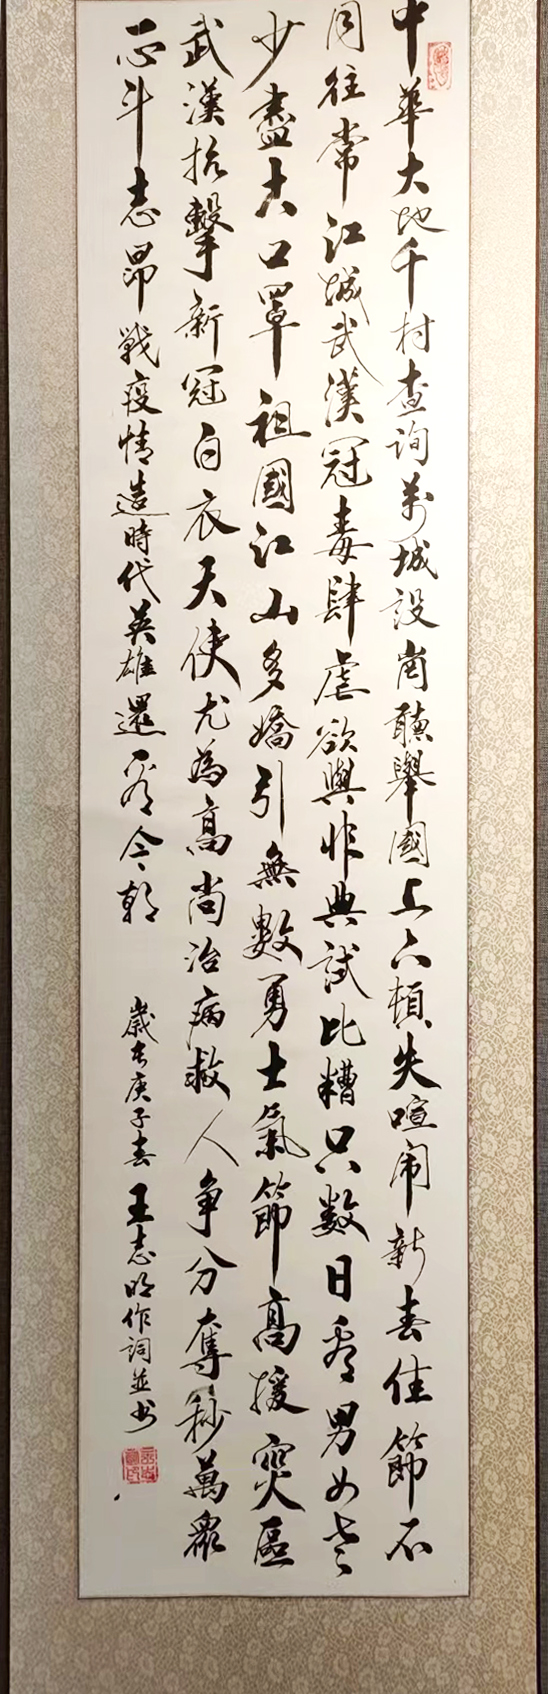 中華大地千村查詢萬城設崗聽舉國上下頓失喧闹新春佳節不
同往常江城武漢冠毒肆虐欲與非典試比糟只數日看男女老
少盡大口罩祖國江山多嬌引無數勇士氣節高援突區
武漢抗擊新冠白衣天使尤為高尚治病救人争分奪秒萬眾
一心斗志昂戰疫情造時代英雄還看今朝
歲在庚子春王志明作詞並书